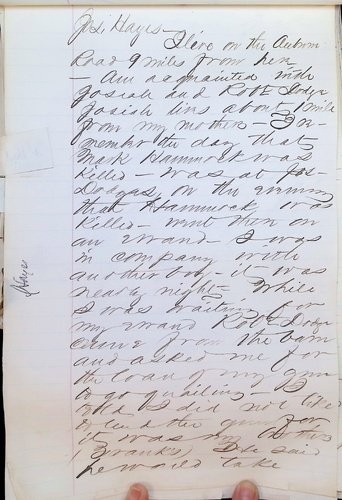 Jos. Hayes —
I live on the Auburn
Road 9 miles from here
— Am acquainted with
Josiah and Robt Dodge
Josiah lives about 1 mile
from my mothers — I re-
member the day that
Mark Hammock was
killed — was at Jos
Dodges, on the evening
that Hammock was
killed — went there on
an errand — I was
in company with
another boy — it was
nearly night — While
I was waiting for
my errand Robt Dodge
came from the barn
and asked me for
the loan of my gun
to go quailing — I
told I did not like
to lend the gun for
it was my brothers
(Franks) He said
he would take
Hayes